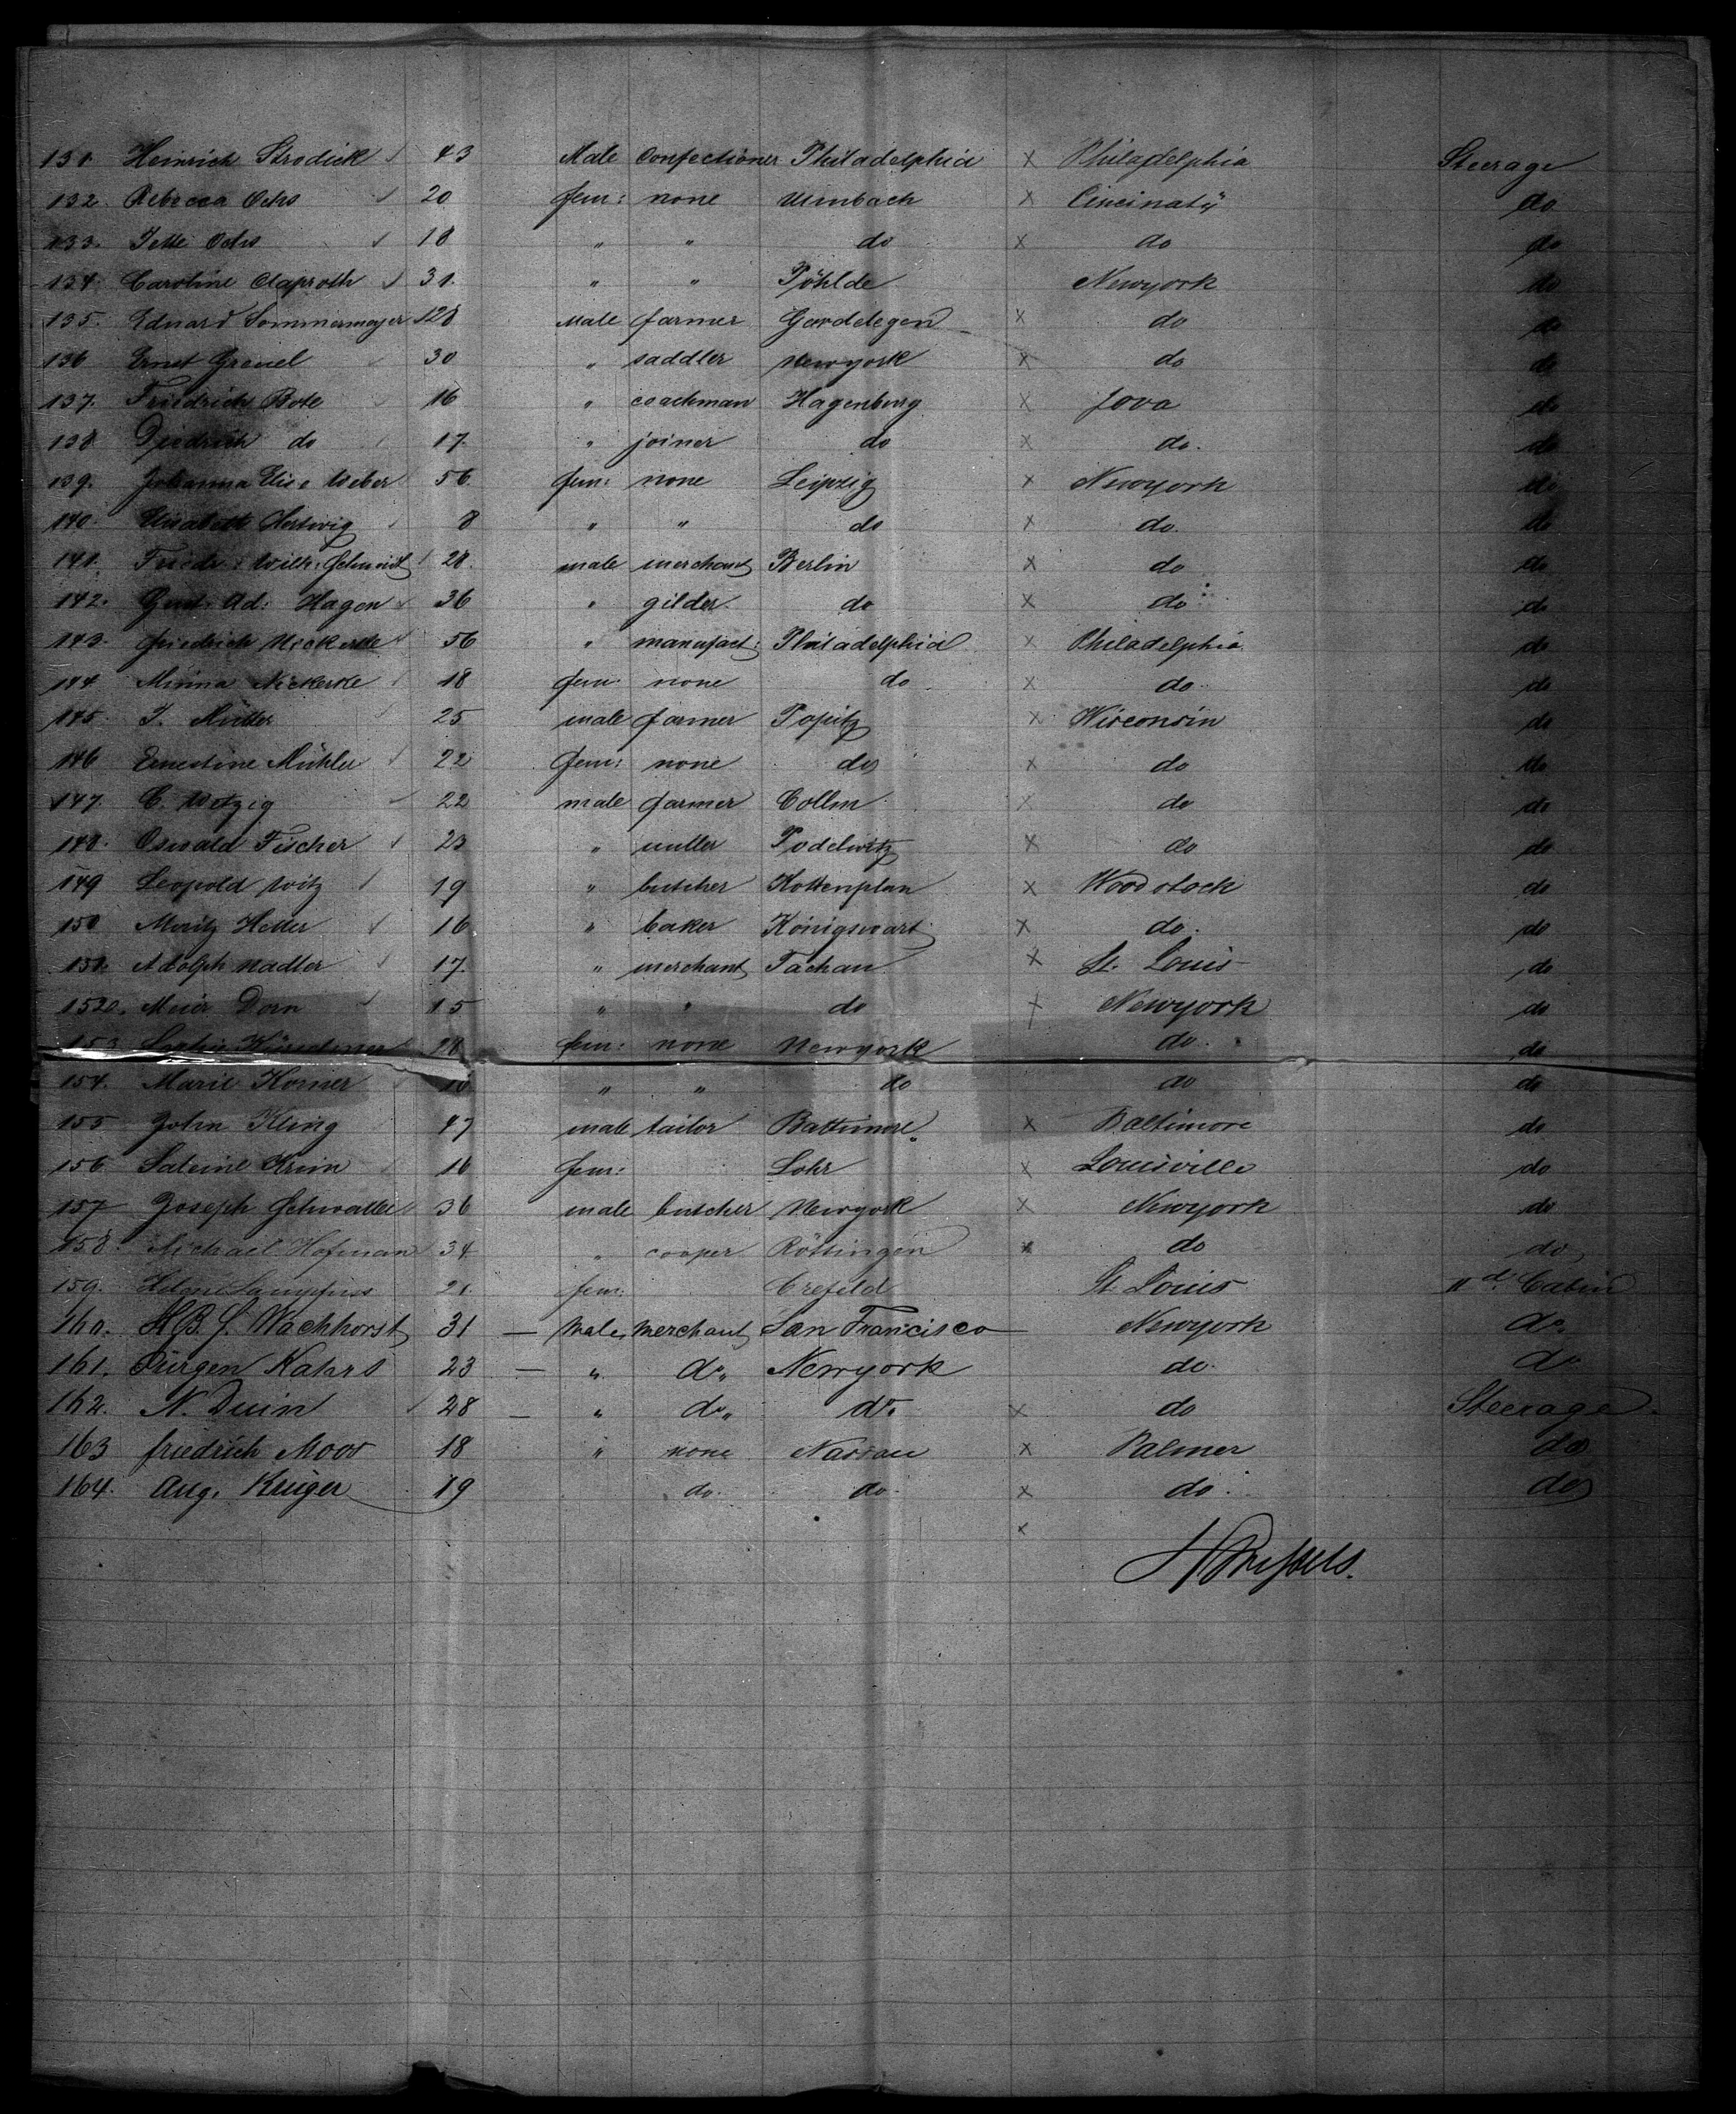 131. Heinrich Strodick 43 Male Confectioner Philadelphia x Philadelphia Steerage
132. Rebecca Ochs 20 fem: none Urnbach x Cincinaty do
133. Jette Ochs 18 " " do x do do
134. Caroline Claproth 31. " " Pöhlde Newyork do
135. Eduard Sommermeyer 28 Male farmer Gardelegen x do do
136 Ernst Grenel 30 " saddler Newyork x do do
137. Friedrich Bote 16 " coachman Hagenburg x Jova do
138 Diedrich do 17. " joiner do x do. do
139. Johanna Elise Weber 56. fem: none Leipzig x Newyork do
140. Elisabeth Hertwig 8 " " do x do. do
141. Friedr. Wilh. Schmidt 28. male merchant Berlin x do do
142. Gust. Ad: Hagen 36 " gilder. do x do do
143. Friedrich Nickerke 56 " manufact: Philadelphia x Philadelphia do
144 Minna Nickerke 18 fem: none do x do. do
145. J. Müller 25 male farmer Popitz x Wisconsin do
146 Ernestine Mühler 22 fem: none do x do do
147. C. Wetzig 22 male farmer Collm x do do
148. Oswald Fischer 23 " miller Podelwitz x do do
149 Leopold Witz 19 " butcher Kottenplan x Woodstock do
150 Moritz Heller 16 " baker Königswart x do. do
151. Adolph Nadler 17. " merchant Tachau x St. Louis do
152. Meier Dorn 15 " " do x Newyork do
153 28 fem: none Newyork do. do
154. Marie Korner 10 " " do do do
155 John Kling 47 male tailor Baltimore x Baltimore do
156 Krim 16 fem: Lohr x Louisville do
157 Joseph Schwaller 36 male butcher Newyork x Newyork do
158. Michael Hofman 34 " cooper Röttingen x do do
159. Helene Lampfuss 21. fem: Crefeld St. Louis IId Cabin
160. H.B.J. Wachhorst 31 — Male Merchant San Francisco — Newyork do
161. Jürgen Kahrs 23 — " do Newyork do. do
162. N. Duin 28 — " do do x do Steerage.
163 Friedrich Moos 18 " none Nassau x Palmer do
164. Aug. Krüger 19 do. do. x do. do
x